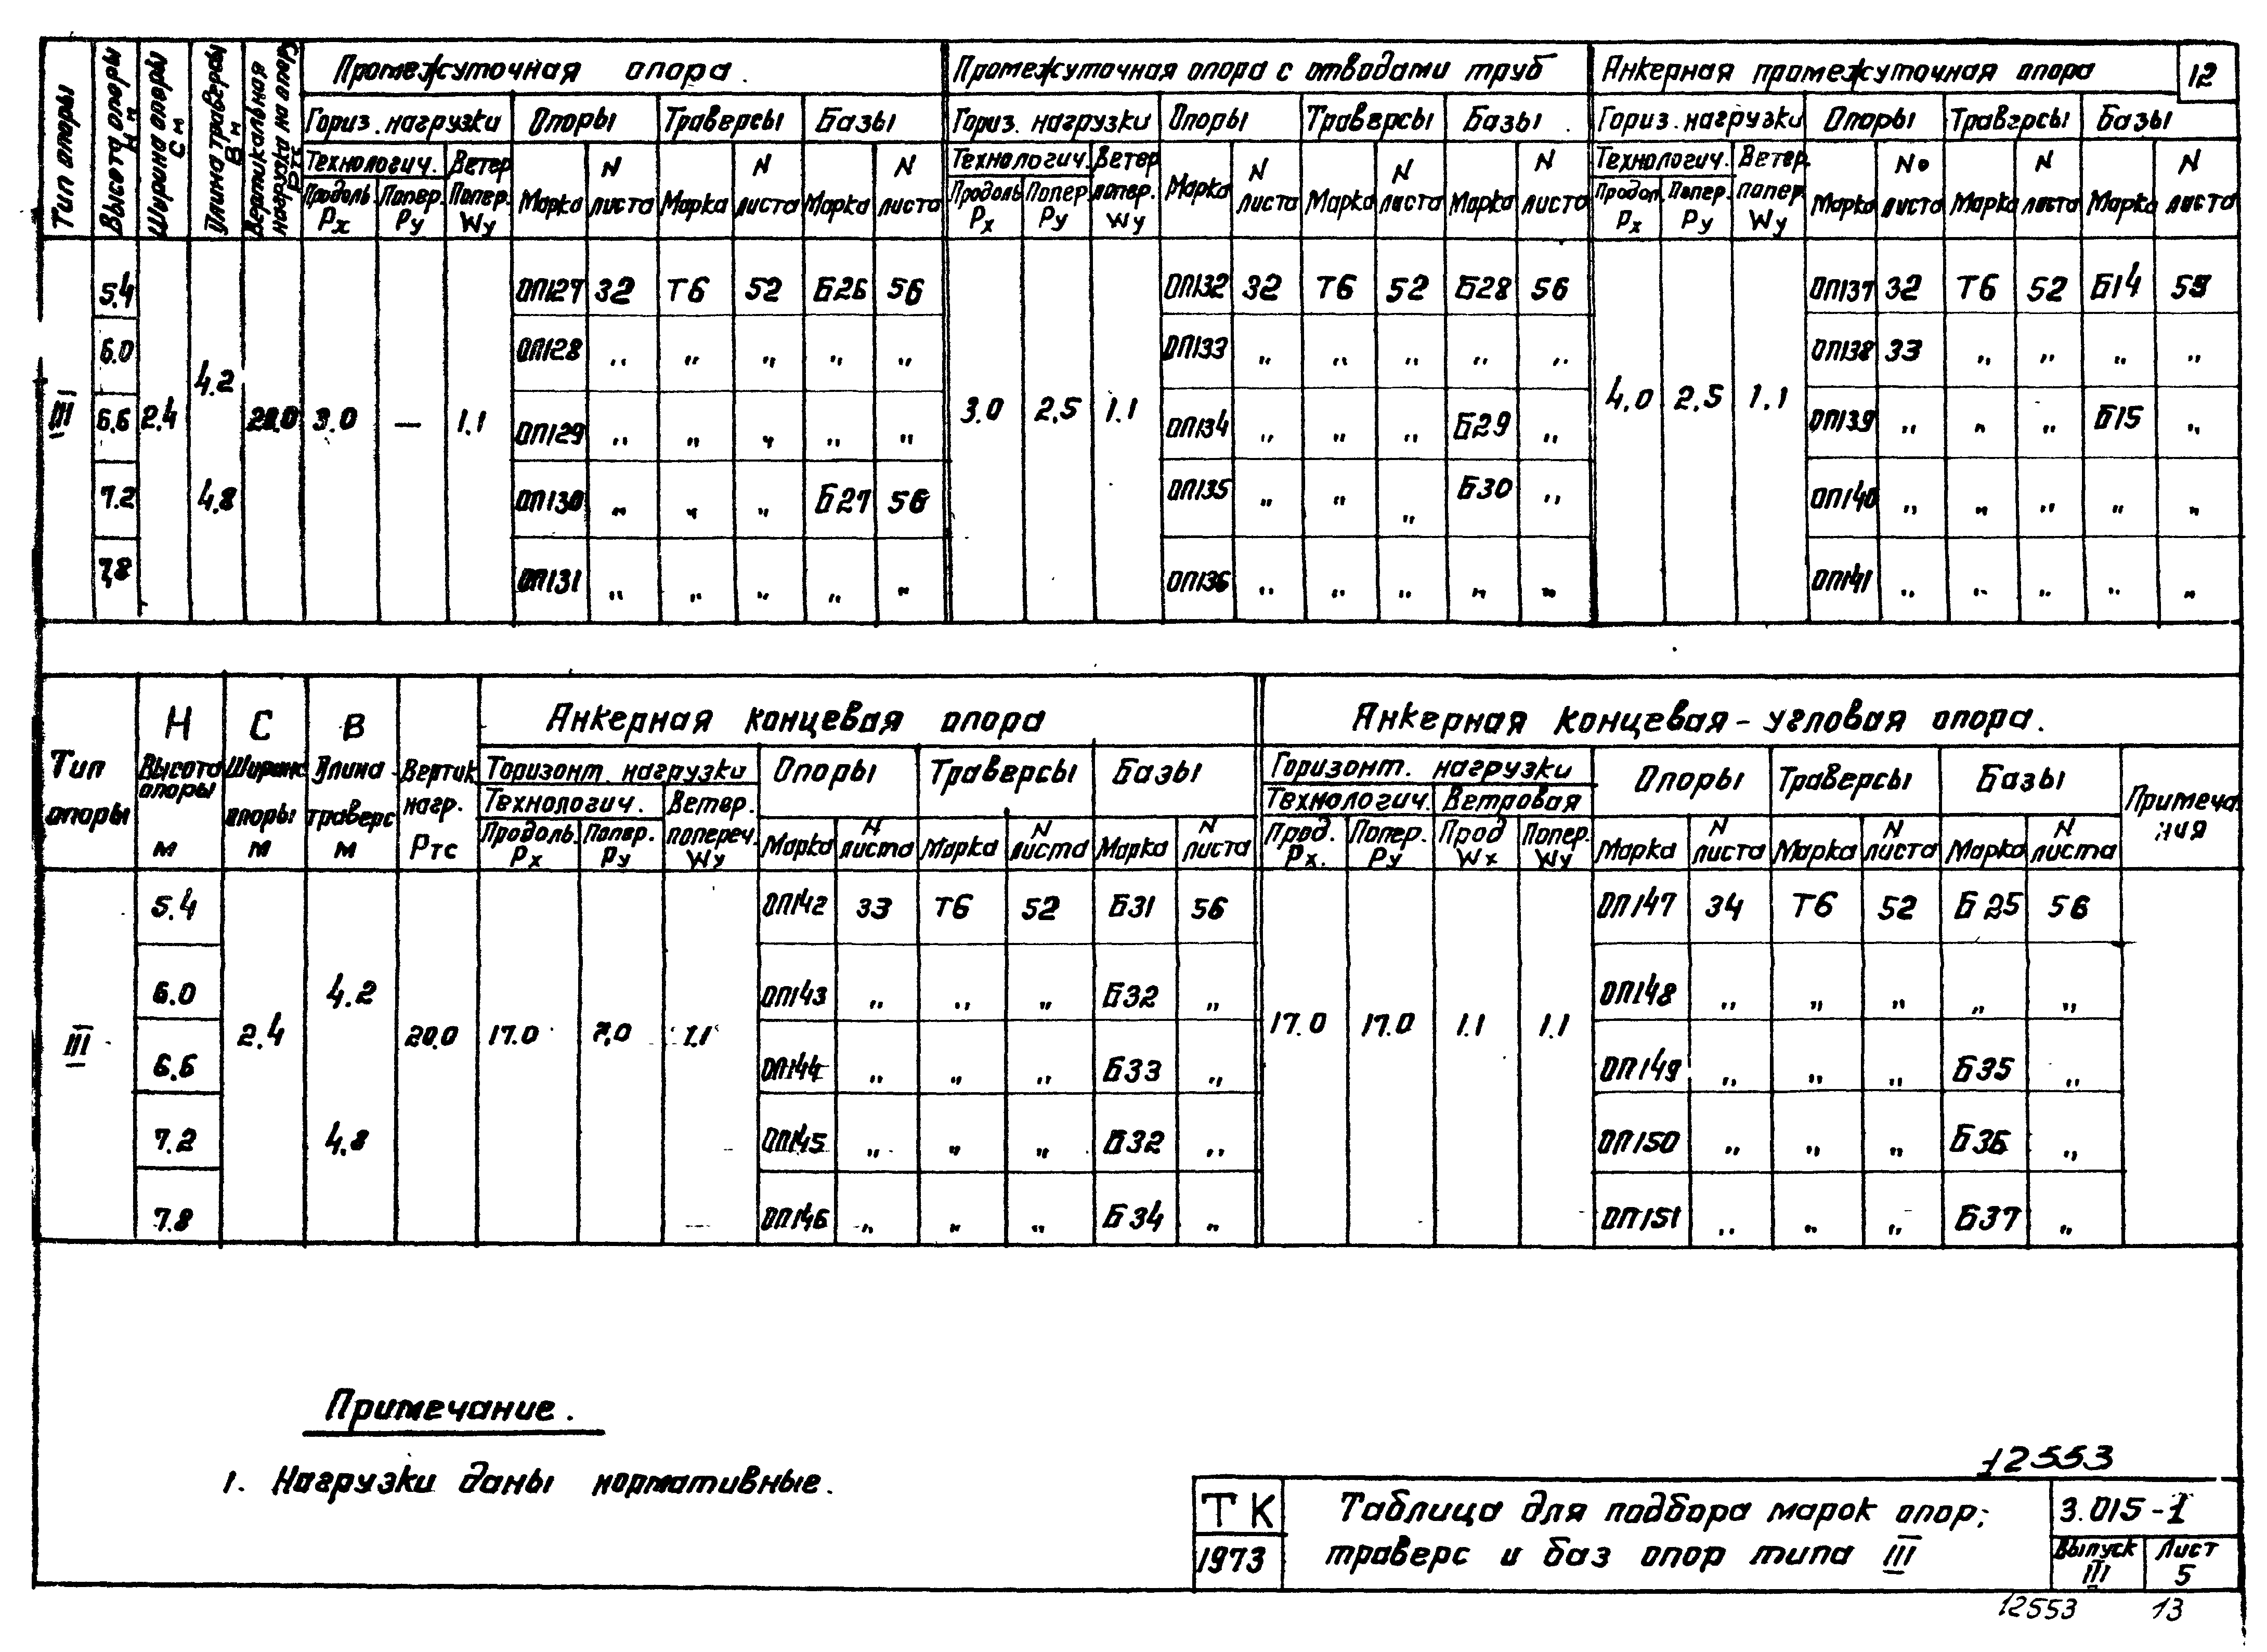 12
Тип опоры
Высота опоры Н м
Ширина опоры С м
Длина траверсы В м
Вертикальная нагрузка на опору Ртс
Промежуточная опора.
Промежуточная опора с отводами труб
Анкерная промежуточная опора
Гориз. нагрузки Опоры Траверсы Базы Гориз. нагрузки Опоры Траверсы Базы. Гориз. нагрузки Опоры Траверсы Базы
Технологич. Ветер N N N Технологич. Ветер N N N Технологич. Ветер. No N N
Продоль. Попер. Попер. Марка листа Марка листа Марка листа Продоль Попер попер. Марка листа Марка листа Марка листа Продол. Попер. попер. Марка листа Марка листа Марка листа
Рх Ру Wу Рх Ру Wу Рх Ру Wу
5.4 ОП127 32 Т6 52 Б26 56 ОП132 32 Т6 52 Б28 56 ОП137 32 Т6 52 Б14 55
6.0 ОП128 " " " " " ОП133 " " " " " ОП138 33 " " " "
4.2
III 6.6 2.4 20.0 3.0 — 1.1 ОП129 " " " " " 3.0 2.5 1.1 ОП134 " " " Б29 " 4.0 2.5 1.1 ОП139 " " " Б15 "
7.2 4.8 ОП130 " " " Б27 56 ОП135 " " " Б30 " ОП140 " " " " "
7.8 ОП131 " " " " " ОП136 " " " " " ОП141 " " " " "
Н С В Анкерная концевая опора Анкерная концевая-угловая опора.
Тип опоры
Высота опоры м
Ширина опоры м
Длина траверс м
Вертик нагр. Ртс
Горизонт. нагрузки Опоры Траверсы Базы Горизонт. нагрузки Опоры Траверсы Базы Примечания
Технологич. Ветер. Технологич. Ветровая
Продоль. Попер. попереч. Марка N листа Марка N листа Марка N листа Прод. Попер. Прод Попер. Марка N листа Марка N листа Марка N листа
Рх Ру Wу Рх. Ру Wх Wу
5.4 ОП142 33 Т6 52 Б31 56 ОП147 34 Т6 52 Б25 56
6.0 4.2 ОП143 " " " Б32 " ОП148 " " " " "
III 2.4 20.0 17.0 7,0 1.1 17.0 17.0 1.1 1.1
6.6 ОП144 " " " Б33 " ОП149 " " " Б35 "
7.2 4.8 ОП145 " " " Б32 " ОП150 " " " Б36 "
7.8 ОП146 " " " Б34 " ОП151 " " " Б37 "
Примечание.
1. Нагрузки даны нормативные.
12553
ТК Таблица для подбора марок опор; 3.015-1
1973 траверс и баз опор типа III Выпуск III Лист 5
12553 13